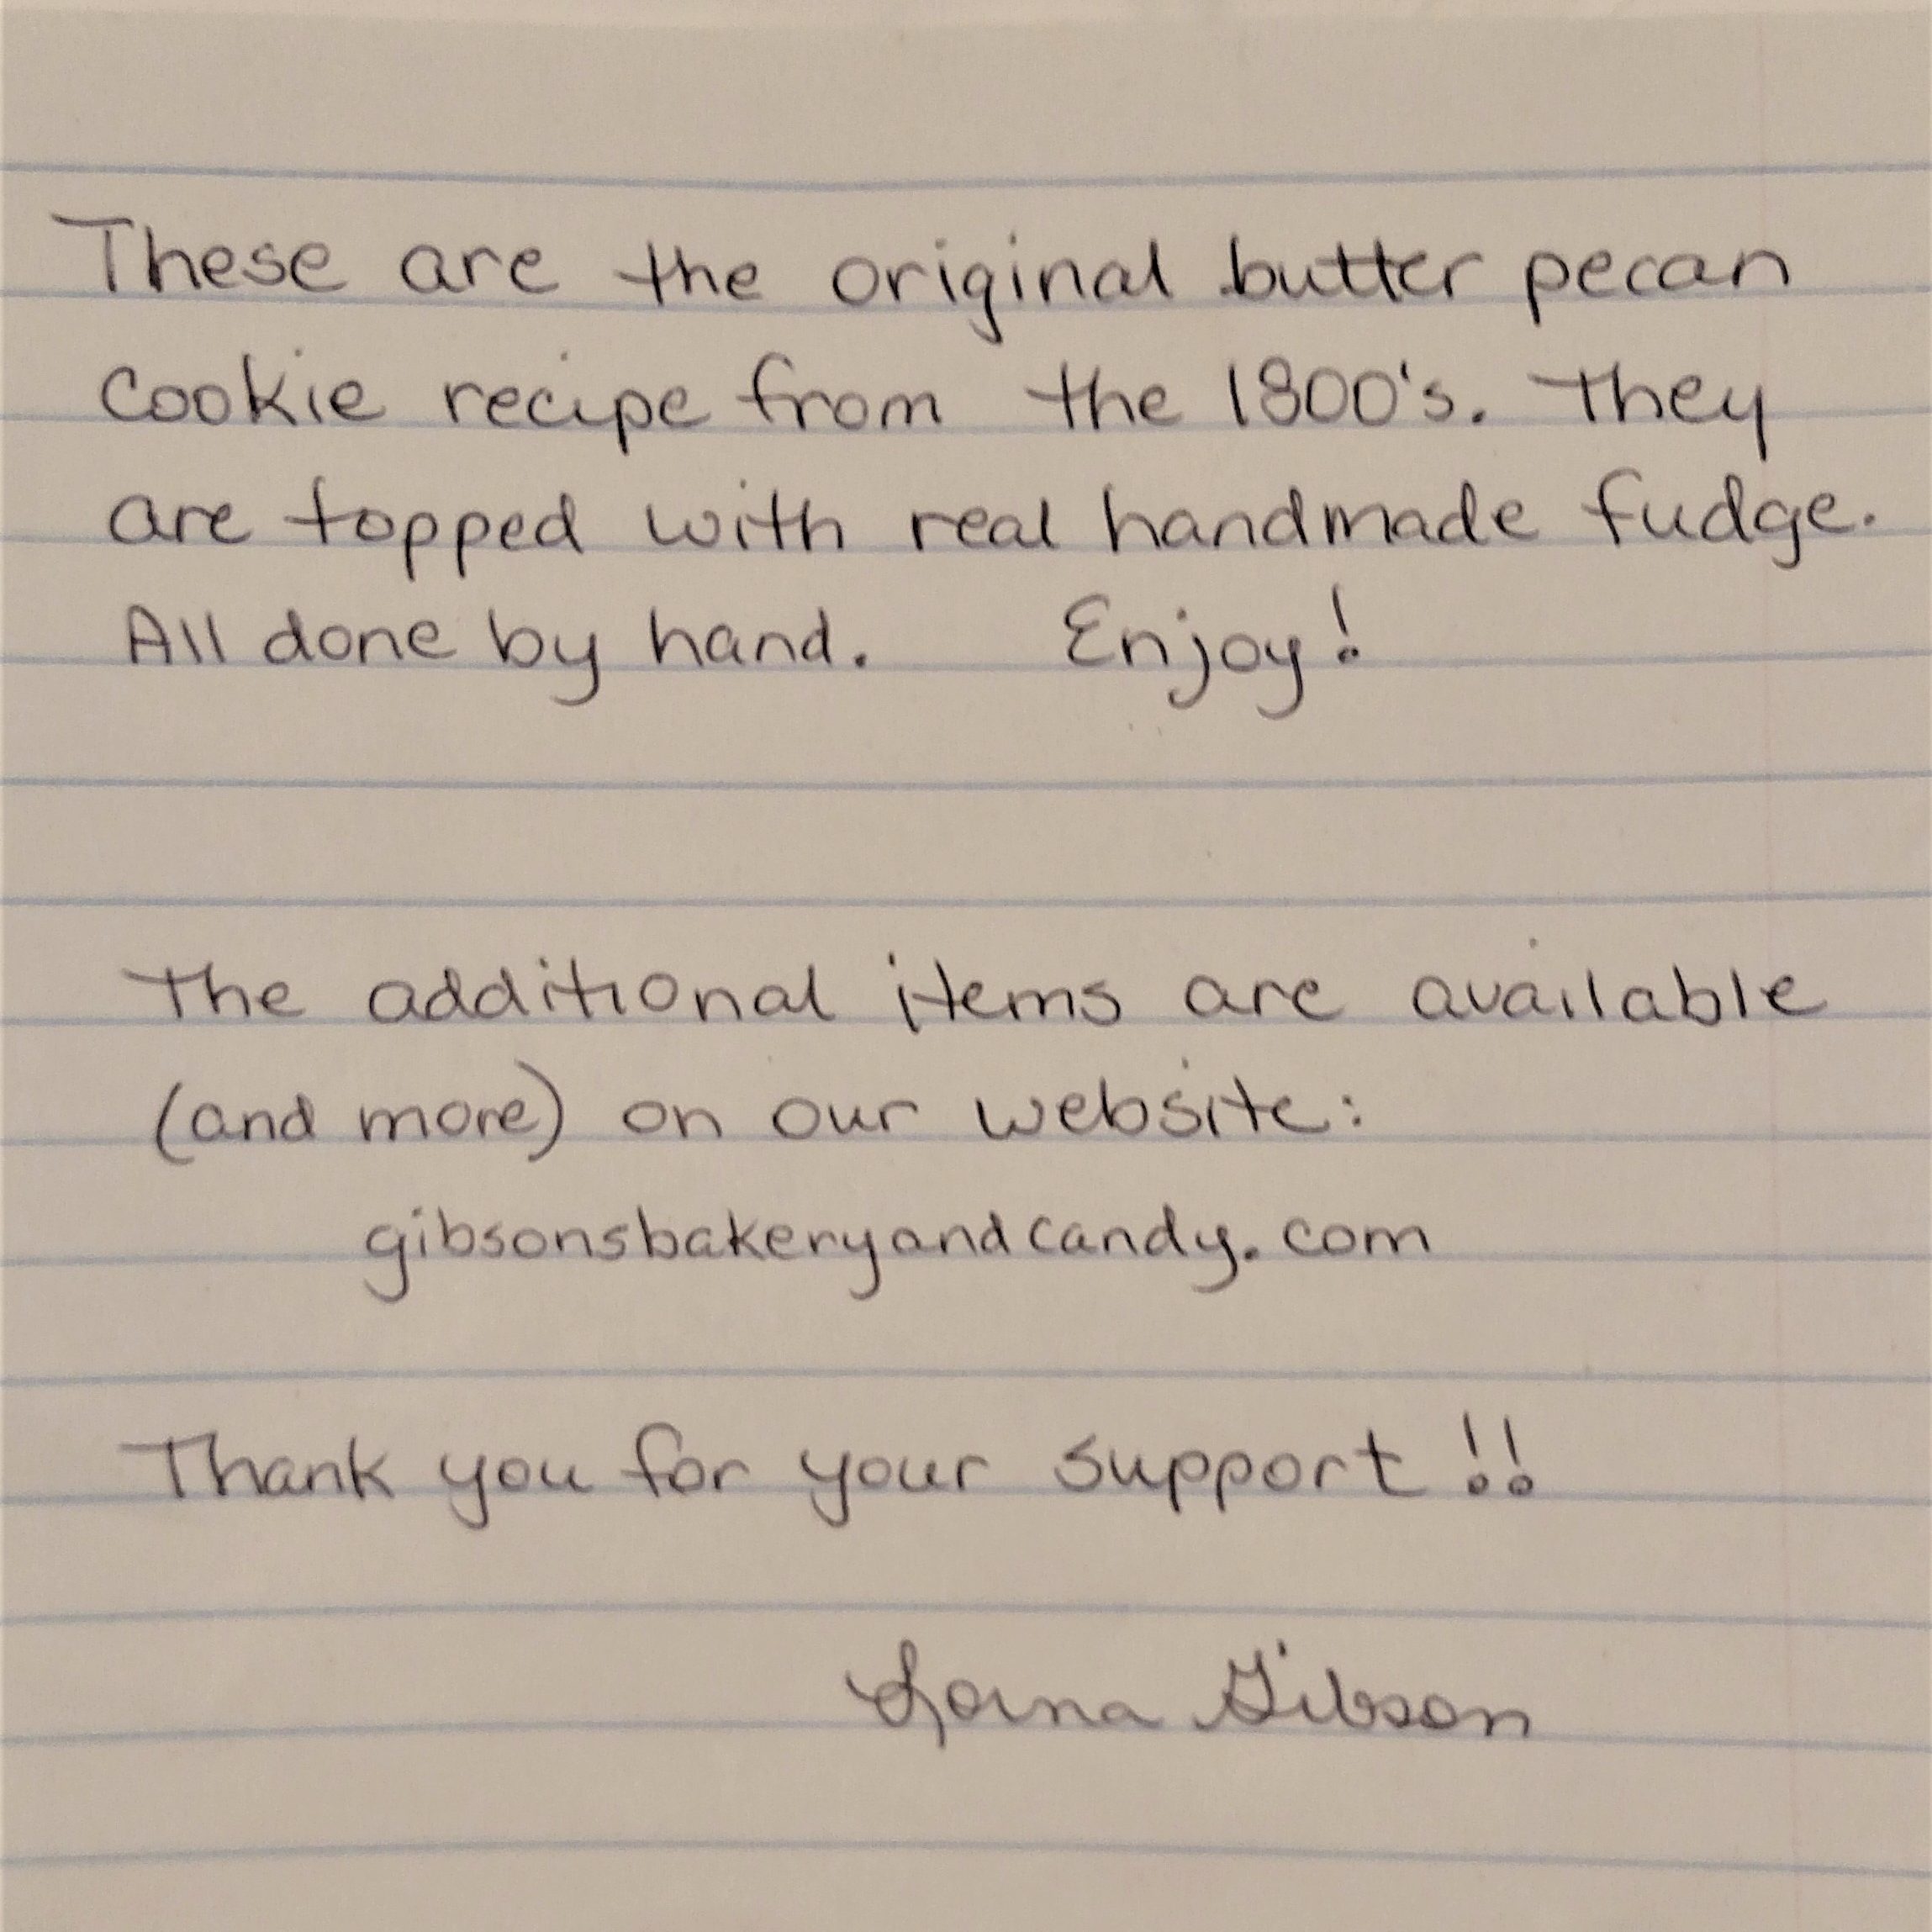 These are the original butter pecan
cookie recipe from the 1800's. They
are topped with real handmade fudge.
All done by hand. Enjoy!
The additional items are available
(and more) on our website:
gibsonsbakeryandcandy.com
Thank you for your support!!
Lorna Gibson